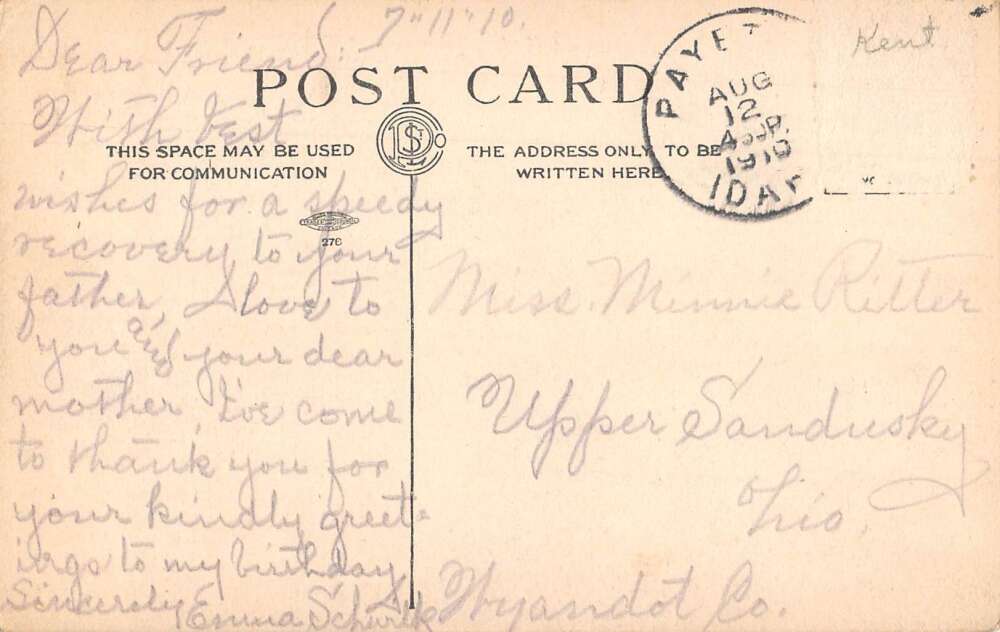 7-11-10.
Dear Friend:
With best
wishes for a speedy
recovery to your
father, & love to
you and your dear
mother, I've come
to thank you for
your kindly greet-
ings to my birthday
Sincerely Emma
POST CARD
THIS SPACE MAY BE USED
FOR COMMUNICATION
THE ADDRESS ONLY TO BE
WRITTEN HERE
276
PAYET
AUG
12
1910
IDAH
Kent
Miss. Minnie Ritter
Upper Sandusky
Ohio.
Wyandot Co.